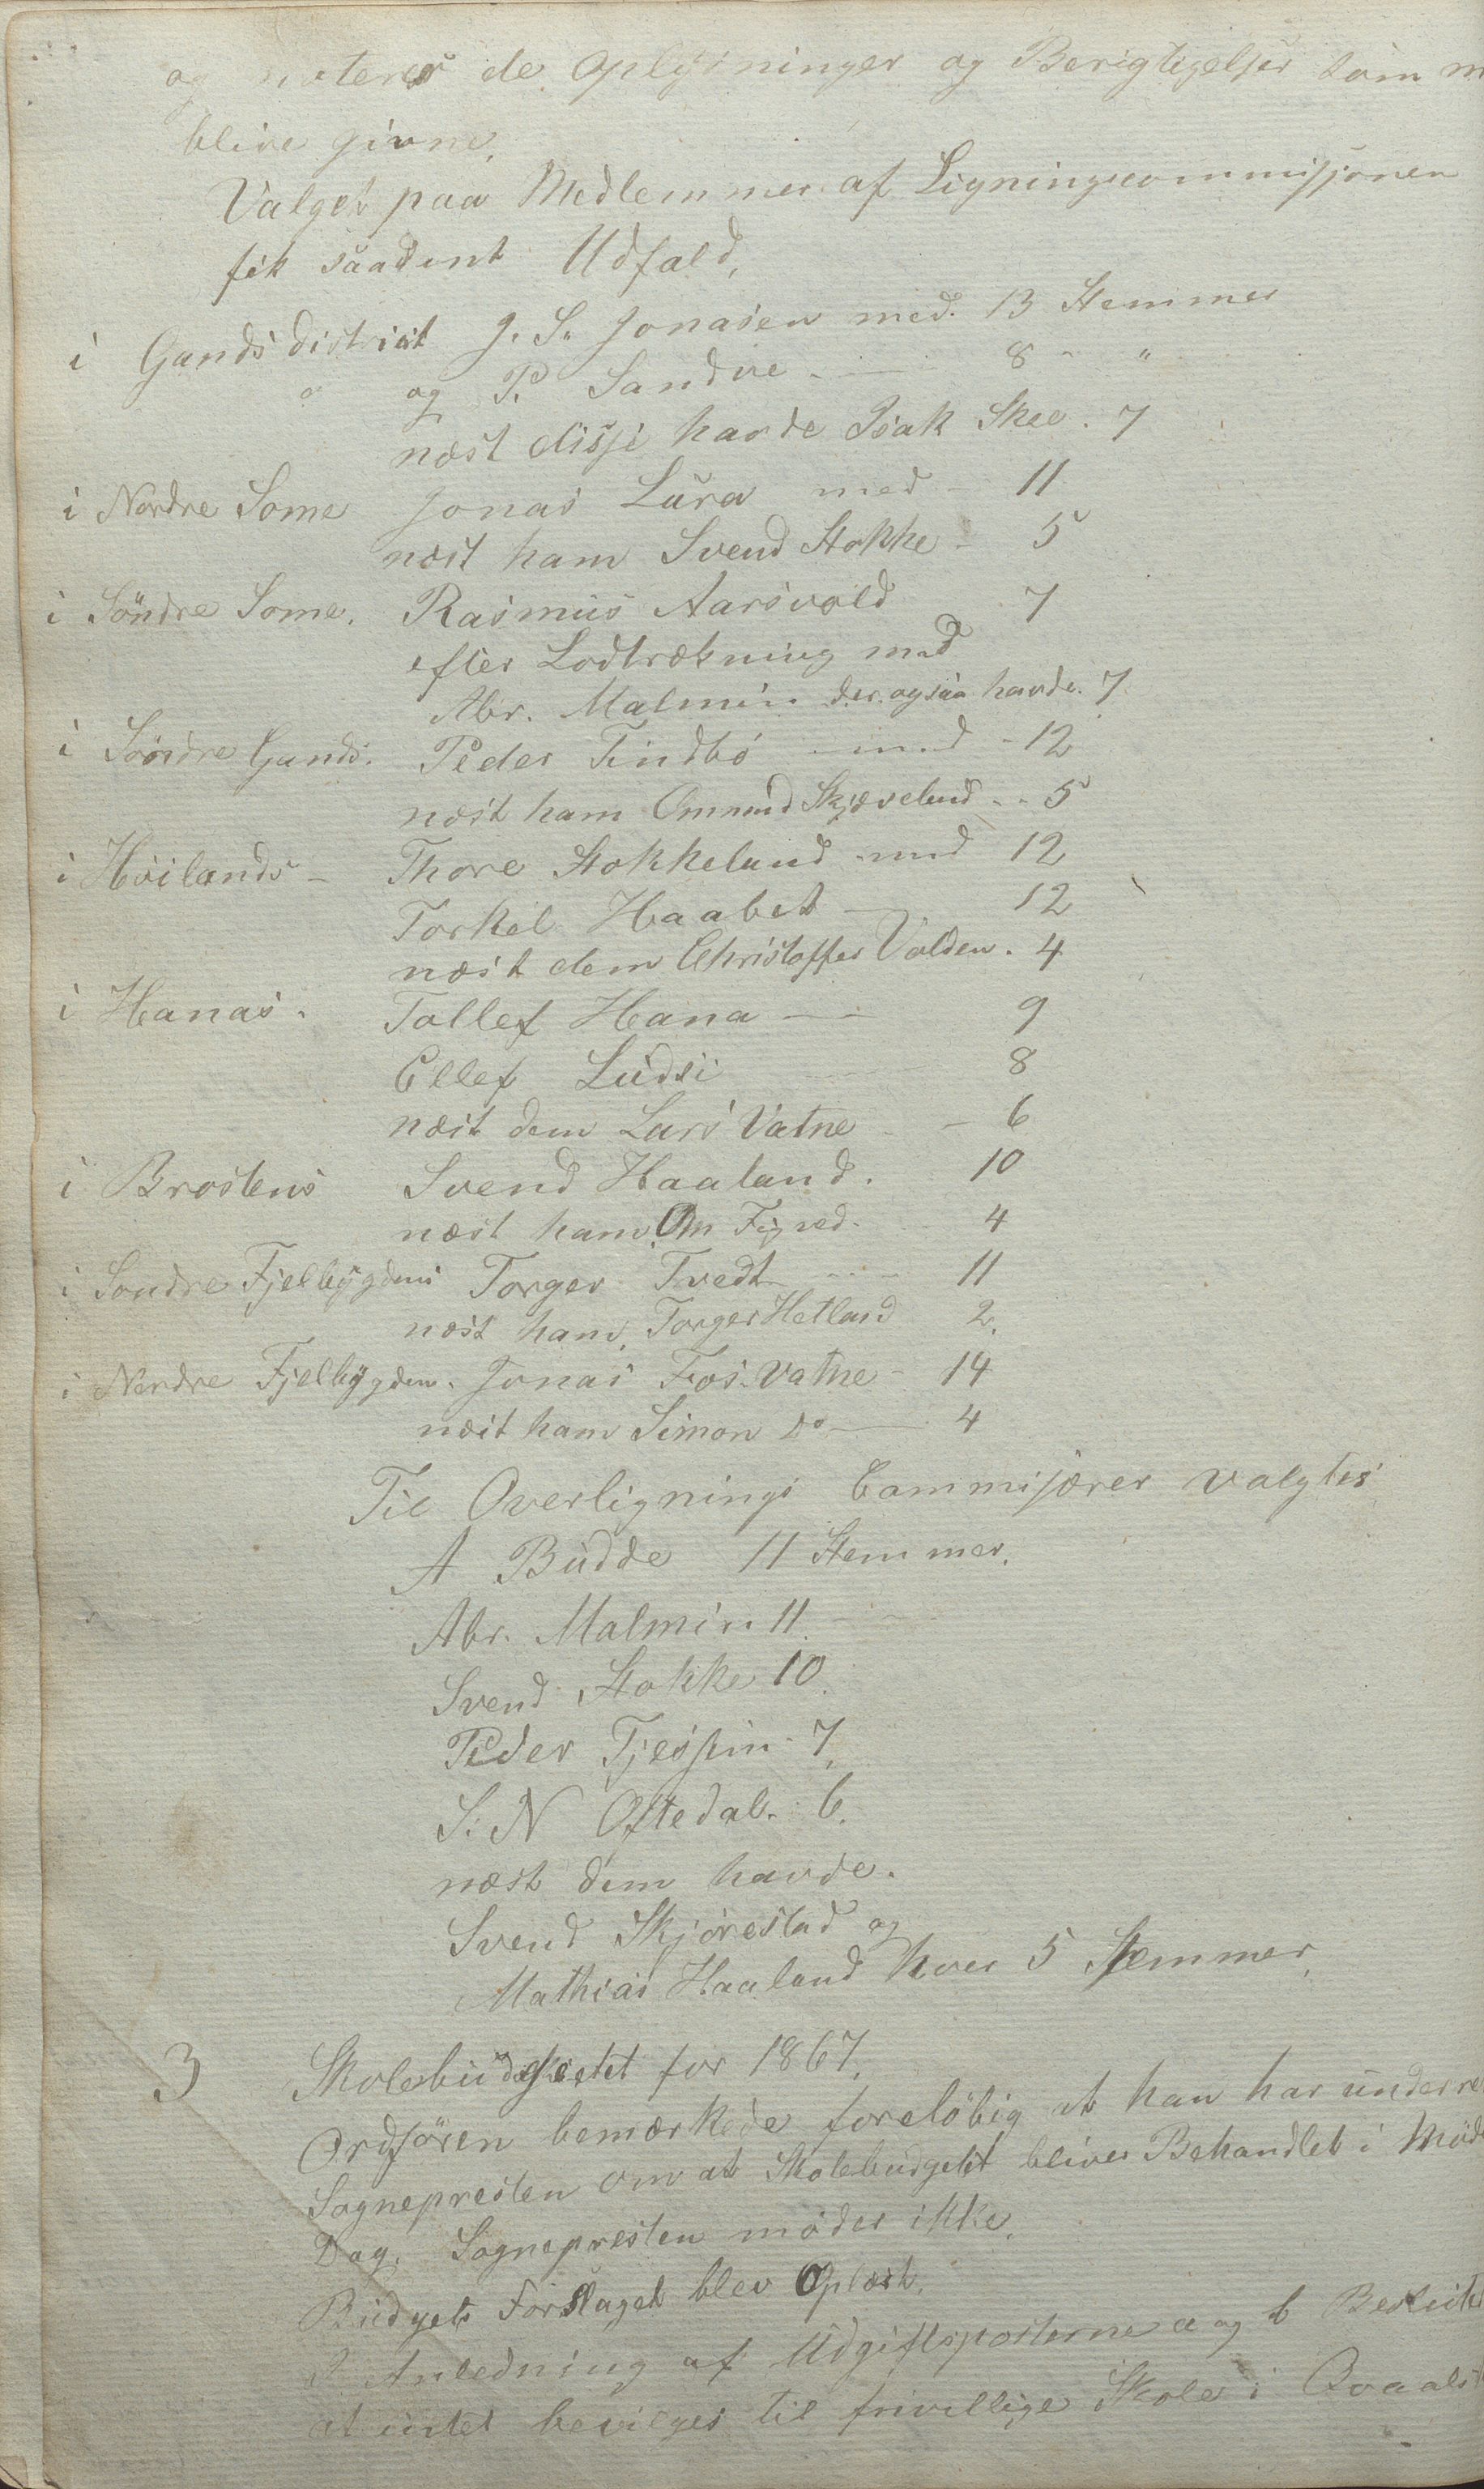 og noteres de Oplysninger og Berigtigelser som m
blive givne.
Valget paa Medlemmer af Ligningscommissjonen
fik saadent Udfald,
i Gands district J. S. Jonasen med. 13 Stemmer
og P. Sandve - 8 - "
næst disse havde Isak Skee. 7
i Nordre Some Jonas Lura med - 11
næst ham Svend Stokke - 5
i Söndre Some. Rasmus Aarsvold 7
efter Lodtrækning med
Abr. Malmin der ogsaa havde. 7.
i Söndre Gands. Peder Tindbö med - 12
næst ham Ommund Skjæveland - - 5
i Höilands - Thore Stokkeland med 12
Torkel Haabet - 12
næst dem Christoffer Valden. 4
i Hanas. Tollef Hana - 9
Ellef Ludsi 8
næst dem Lars Vatne - 6
i Brostens Svend Haaland. 10
næst ham Om Figved. 4
i Sondre Fjelbygdens Torger Tvedt - 11
næst ham, Torger Hetland 2.
i Nordre Fjelbygden. Jonas Fos-Vatne - 14
næst ham Simon Do - 4
Til Overlignings Commisærer valgtes
A Budde 11 Stemmer.
Abr. Malmin 11. -
Svend Stokke 10.
Peder Tjessem. 7.
S. N Oftedal. 6.
næst dem havde.
Svend Skjörestad og
Mathias Haaland hver 5 Stemmer.
3 Skolebudgettet for 1867.
Ordfören bemærkede forelöbig at han har underre
Sognepresten om at Skolebudgetet bliver Behandlet i Möde
Dag. Sognepresten möder ikke.
Budgets Forslaget blev Oplæst.
I Anledning af Udgiftsposterne a og b Beslutte
at intet bevilges til frivillige Skole i